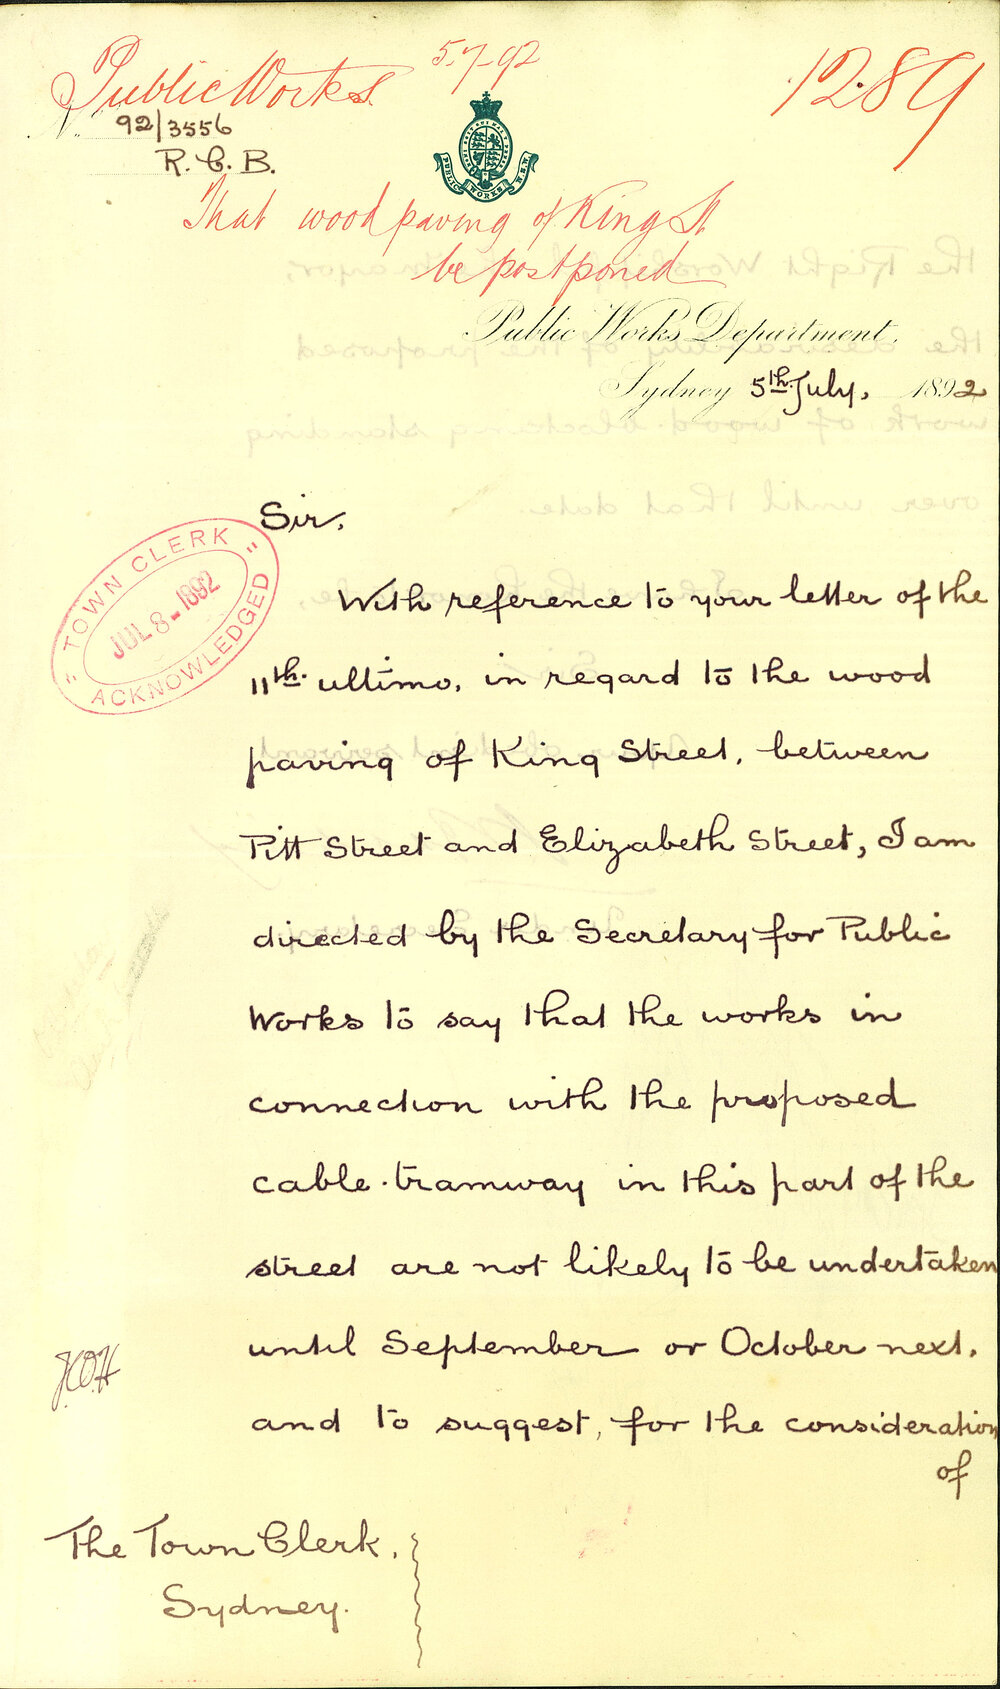 Public Works
5.7.92
1289
No. 92/3556
R.C.B.
PUBLIC WORKS N.S.W.
That wood paving of King St
be postponed
Public Works Department,
Sydney 5th July, 1892
Sir,
"TOWN CLERK"
JUL 8-1892
ACKNOWLEDGED
With reference to your letter of the
11th. ultimo, in regard to the wood
paving of King Street, between
Pitt Street and Elizabeth Street, I am
directed by the Secretary for Public
Works to say that the works in
connection with the proposed
cable-tramway in this part of the
street are not likely to be undertaken
until September or October next,
and to suggest, for the consideration
of
The Town Clerk,
Sydney.